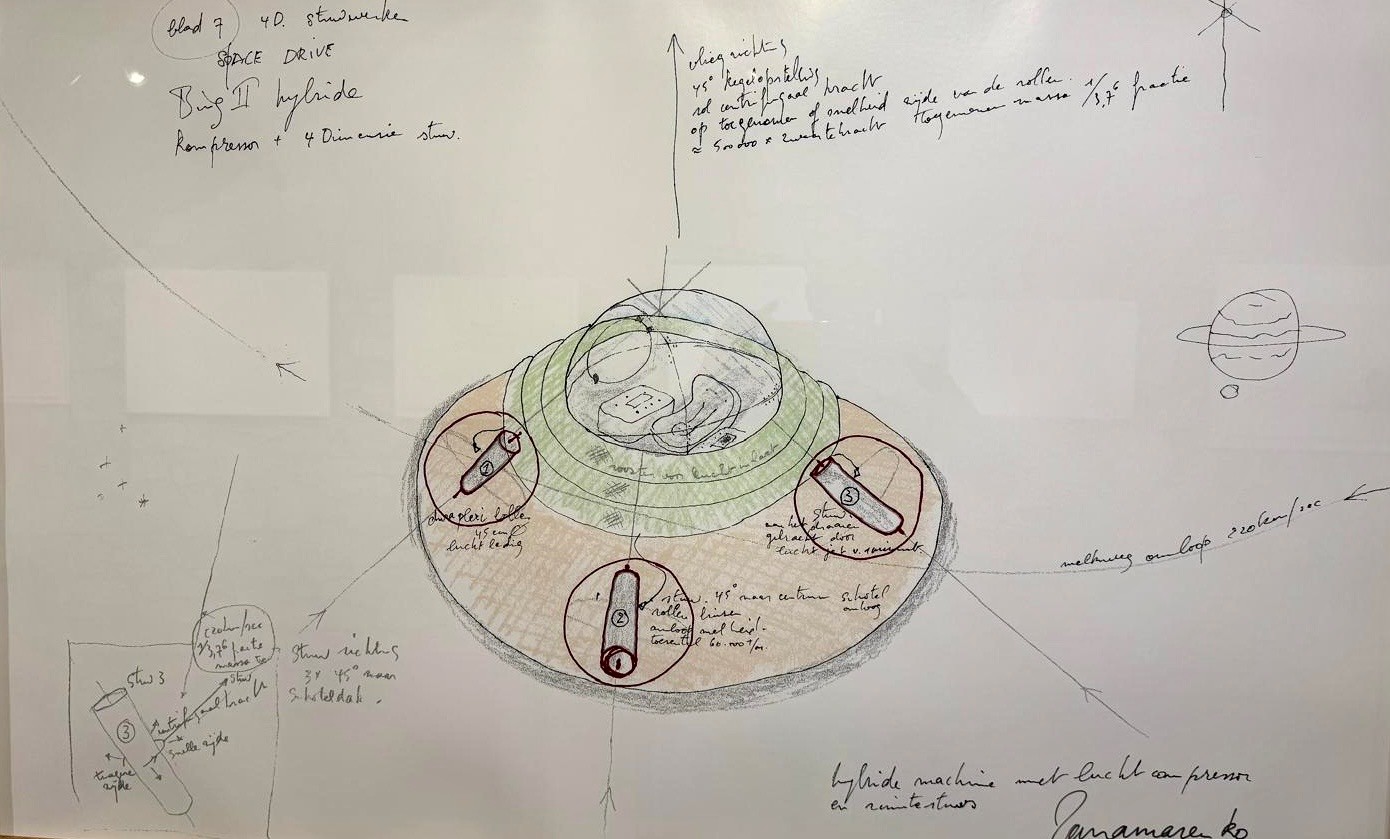 blad 7 4D. stuwwerken
SPACE DRIVE
Bing II hybride
Kompressor + 4 Dimensie stuw.
vliegrichting
45° kegelopstelling
rol centrifugaal kracht
op toegenomen snelheid zijde van de rollen.
≈ 500000 × zwaartekracht toegenomen massa 1/3,76 fractie
rooster voor lucht inlaat
1
2
3
45 cm
lucht ledig
stuw.
aan het draaien
gebracht door
lucht jet
stuw. 45° naar centrum schotel
rollen binnen omhoog
omloop snelheid.
toerental 60.000 t/m.
melkweg omloop 220 km/sec
220 km/sec
1/3,76
massa
stuw 3
3
stuw
centrifugaal kracht
snelle zijde
trage
zijde
Stuw richting
3 × 45° naar
Schoteldak.
hybride machine met luchtcompressor
en ruimtestuws
Panamarenko